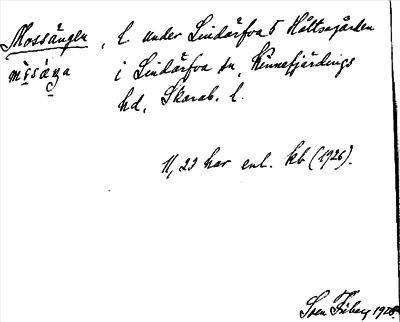 Mossängen, l. under Lindärfva 5 Håltsgården
i Lindärfva sn, Kinnefjärdings
hd, Skarab. l.
11,23 har enl. kb (1926).
Sven Friberg 1928.